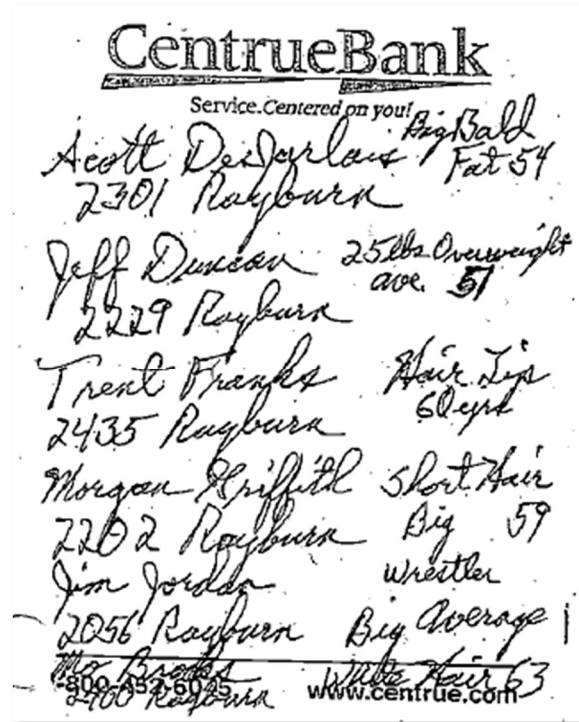 CentrueBank
Service. Centered on you!
Scott DesJarlais Big Bald
2301 Rayburn Fat 54
Jeff Duncan 25 lbs Overweight
2229 Rayburn ave. 51
Trent Franks Hair Lip
2435 Rayburn 60 yrs
Morgan Griffith Short Hair
2202 Rayburn Big 59
Jim Jordan Wrestler
2056 Rayburn Big Average
Mo Brooks White Hair 63
2400 Rayburn
800-452-6045 www.centrue.com